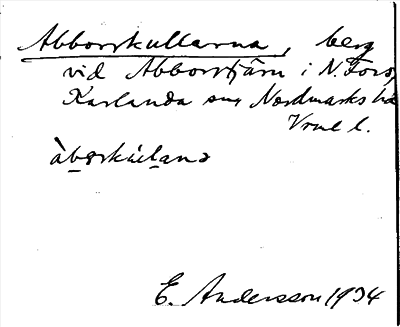 Abborrkullarna, berg
vid Abborrtjärn i N. Fors,
Karlanda sn, Nordmarks hd
Vrml l.
àbərkùlanə
E. Andersson 1934